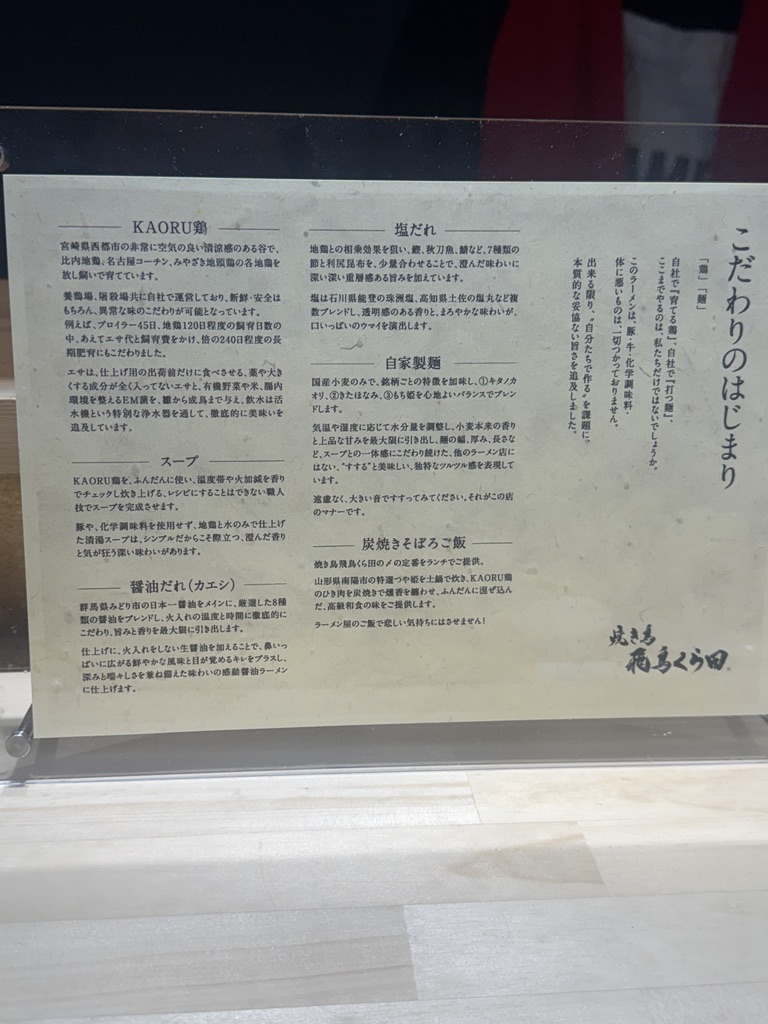 こだわりのはじまり
「鶏」「麺」
自社で『育てる鶏』、自社で『打つ麺』、
ここまでやるのは、私たちだけではないでしょうか。
このラーメンは、豚・牛・化学調味料・
体に悪いものは、一切つかっておりません。
出来る限り、“自分たちで作る”を課題に。
本質的な妥協ない旨さを追及しました。
KAORU鶏
宮崎県西都市の非常に空気の良い清涼感のある谷で、
比内地鶏、名古屋コーチン、みやざき地頭鶏の各地鶏を
放し飼いで育てています。
養鶏場、屠殺場共に自社で運営しており、新鮮・安全は
もちろん、異常な味のこだわりが可能となっています。
例えば、ブロイラー45日、地鶏120日程度の飼育日数の
中、あえてエサ代と飼育費をかけ、倍の240日程度の長
期肥育にもこだわりました。
エサは、仕上げ用の出荷前だけに食べさせる、薬や大き
くする成分が全く入ってないエサと、有機野菜や米、腸内
環境を整えるEM菌を、雛から成鳥まで与え、飲水は活
水機という特別な浄水器を通して、徹底的に美味いを
追及しています。
スープ
KAORU鶏を、ふんだんに使い、温度帯や火加減を香り
でチェックし炊き上げる、レシピにすることはできない職人
技でスープを完成させます。
豚や、化学調味料を使用せず、地鶏と水のみで仕上げ
た清湯スープは、シンプルだからこそ際立つ、澄んだ香り
と気が狂う深い味わいがあります。
醤油だれ（カエシ）
群馬県みどり市の日本一醤油をメインに、厳選した8種
類の醤油をブレンドし、火入れの温度と時間に徹底的に
こだわり、旨みと香りを最大限に引き出します。
仕上げに、火入れをしない生醤油を加えることで、鼻いっ
ぱいに広がる鮮やかな風味と目が覚めるキレをプラスし、
深みと瑞々しさを兼ね備えた味わいの感動醤油ラーメン
に仕上げます。
塩だれ
地鶏との相乗効果を狙い、鰹、秋刀魚、鯖など、7種類の
節と利尻昆布を、少量合わせることで、澄んだ味わいに
深い深い重層感ある旨みを加えています。
塩は石川県能登の珠洲塩、高知県土佐の塩丸など複
数ブレンドし、透明感のある香りと、まろやかな味わいが、
口いっぱいのウマイを演出します。
自家製麺
国産小麦のみで、銘柄ごとの特徴を加味し、①キタノカ
オリ、②きたほなみ、③もち姫を心地よいバランスでブレン
ドします。
気温や湿度に応じて水分量を調整し、小麦本来の香り
と上品な甘みを最大限に引き出し、麺の幅、厚み、長さな
ど、スープとの一体感にこだわり続けた、他のラーメン店に
はない、“すする”と美味しい、独特なツルツル感を表現して
います。
遠慮なく、大きい音ですすってみてください。それがこの店
のマナーです。
炭焼きそぼろご飯
焼き鳥飛鳥くら田の〆の定番をランチでご提供。
山形県南陽市の特選つや姫を土鍋で炊き、KAORU鶏
のひき肉を炭焼きで燻香を纏わせ、ふんだんに混ぜ込ん
だ、高級和食の味をご提供します。
ラーメン屋のご飯で悲しい気持ちにはさせません！
焼き鳥
飛鳥くら田